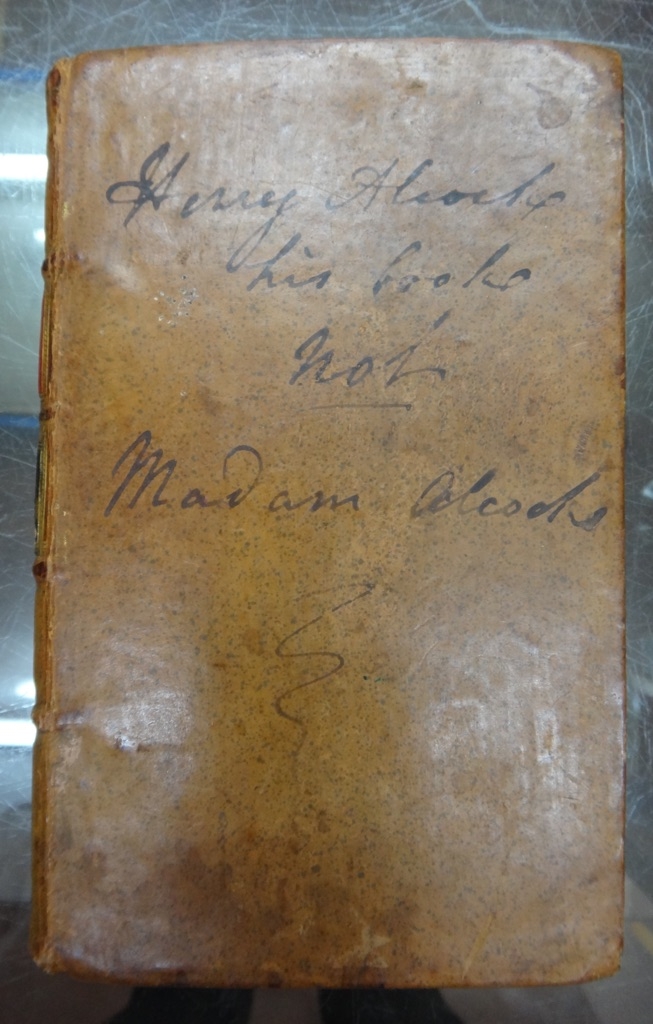 Henry Alcock
his book
not
Madam Alcocks